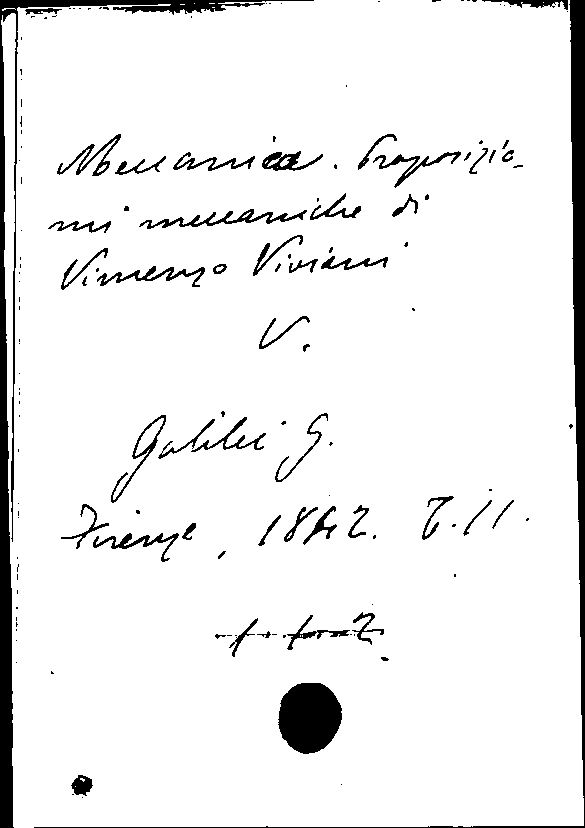 Meccanica. Proposizio-
ni meccaniche di
Vincenzo Viviani
V.
Galilei G.
Firenze, 1842. T. 11.